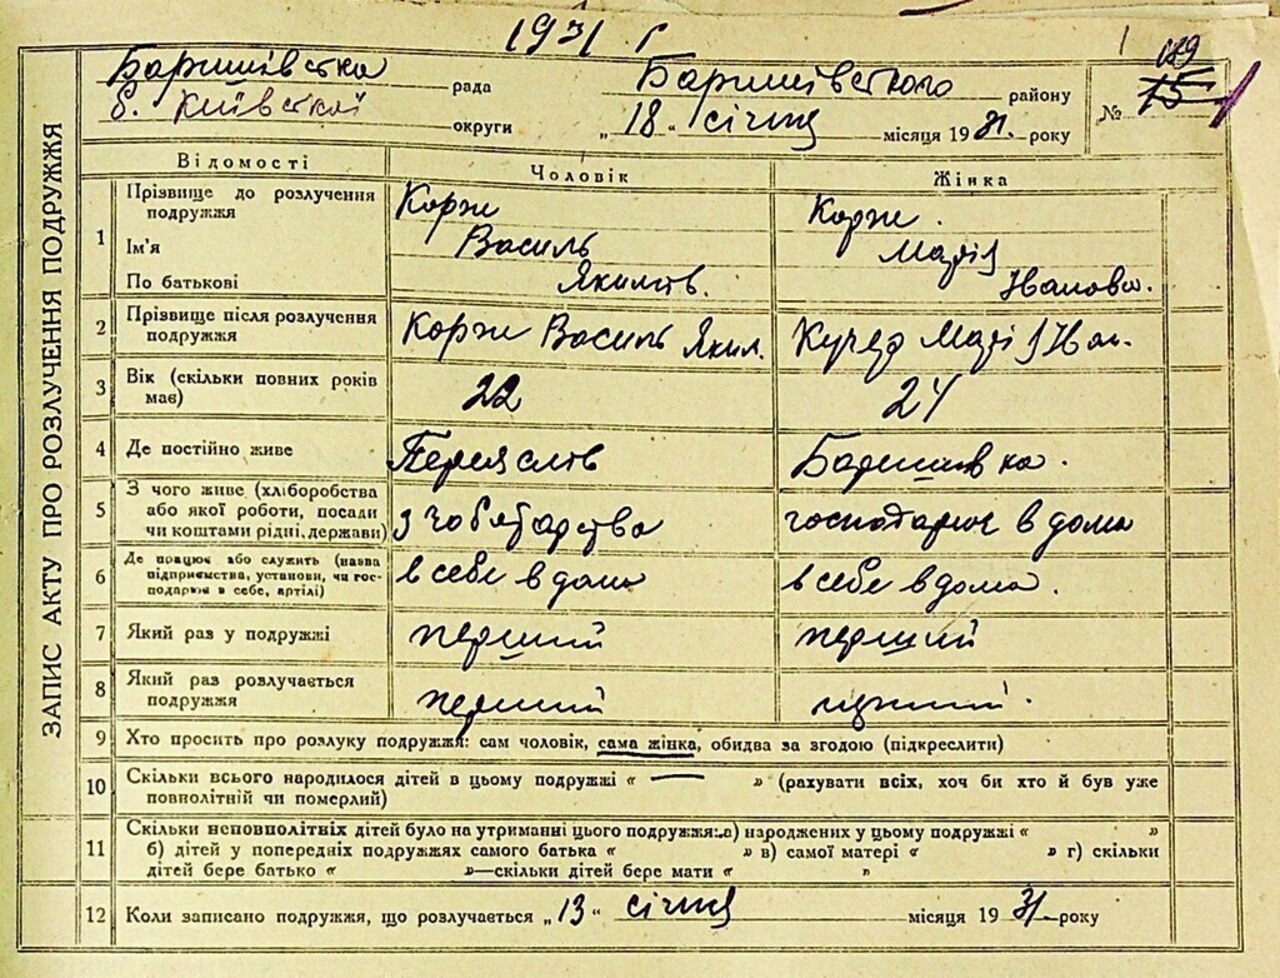 1931 г
Баришівська рада Баришівського району № 129
б. Київської округи „ 18 “ січня місяця 1931. року
ЗАПИС АКТУ ПРО РОЗЛУЧЕННЯ ПОДРУЖЖЯ
Відомості Чоловік Жінка
1 Прізвище до розлучення подружжя Корж Корж.
Ім'я Василь Марія
По батькові Якимів. Іванова.
2 Прізвище після розлучення
подружжя Корж Василь Яким. Кучер Марія Іван.
3 Вік (скільки повних років
має) 22 24
4 Де постійно живе Переяслів Баришівка.
5 З чого живе (хліборобства
або якої роботи, посади
чи коштами рідні, держави) з чоботарства господарює в дома
6 Де працює або служить (назва
підприємства, установи, чи гос-
подарює в себе, артілі) в себе в дома в себе в дома.
7 Який раз у подружжі перший перший
8 Який раз розлучається
подружжя перший перший.
9 Хто просить про розлуку подружжя: сам чоловік, сама жінка, обидва за згодою (підкреслити)
10 Скільки всього народилося дітей в цьому подружжі « — » (рахувати всіх, хоч би хто й був уже
повнолітній чи померлий)
11 Скільки неповнолітніх дітей було на утриманні цього подружжя: а) народжених у цьому подружжі « »
б) дітей у попередніх подружжях самого батька « » в) самої матері « » г) скільки
дітей бере батько « »—скільки дітей бере мати « »
12 Коли записано подружжя, що розлучається „ 13 “ січня місяця 1931. року